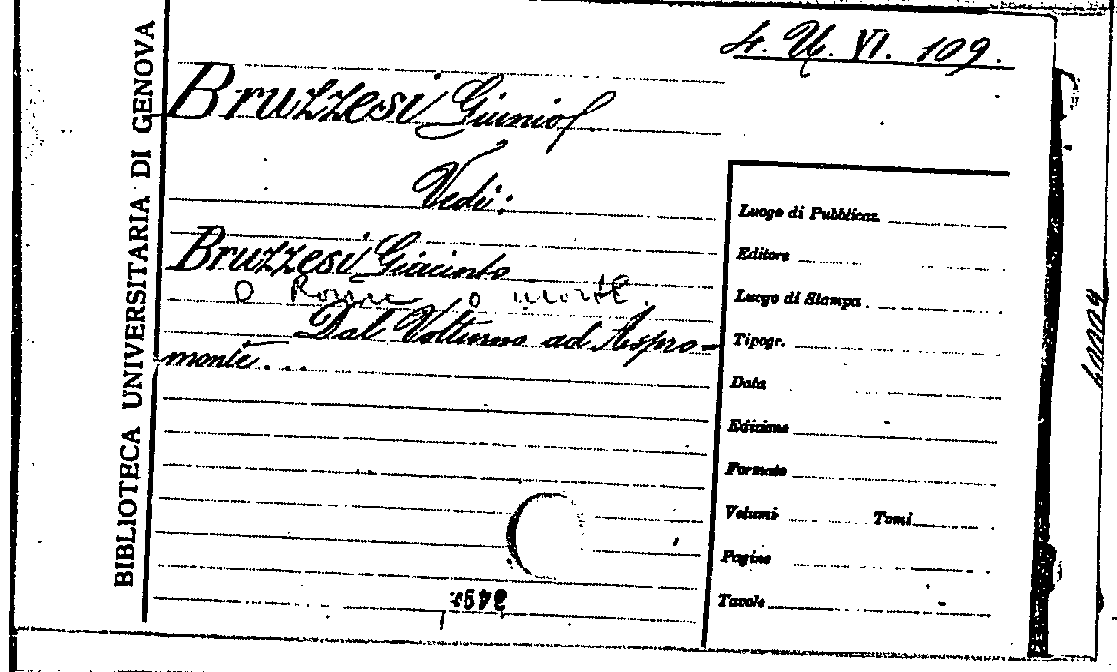 BIBLIOTECA UNIVERSITARIA DI GENOVA
4. U. VI. 109.
Bruzzesi
Vedi:
Bruzzesi Giacinto
O Roma o morte.
Dal Volturno ad Aspro-
monte...
Luogo di Pubblicaz.
Editore
Luogo di Stampa
Tipogr.
Data
Edizione
Formato
Volumi Tomi
Pagine
Tavole